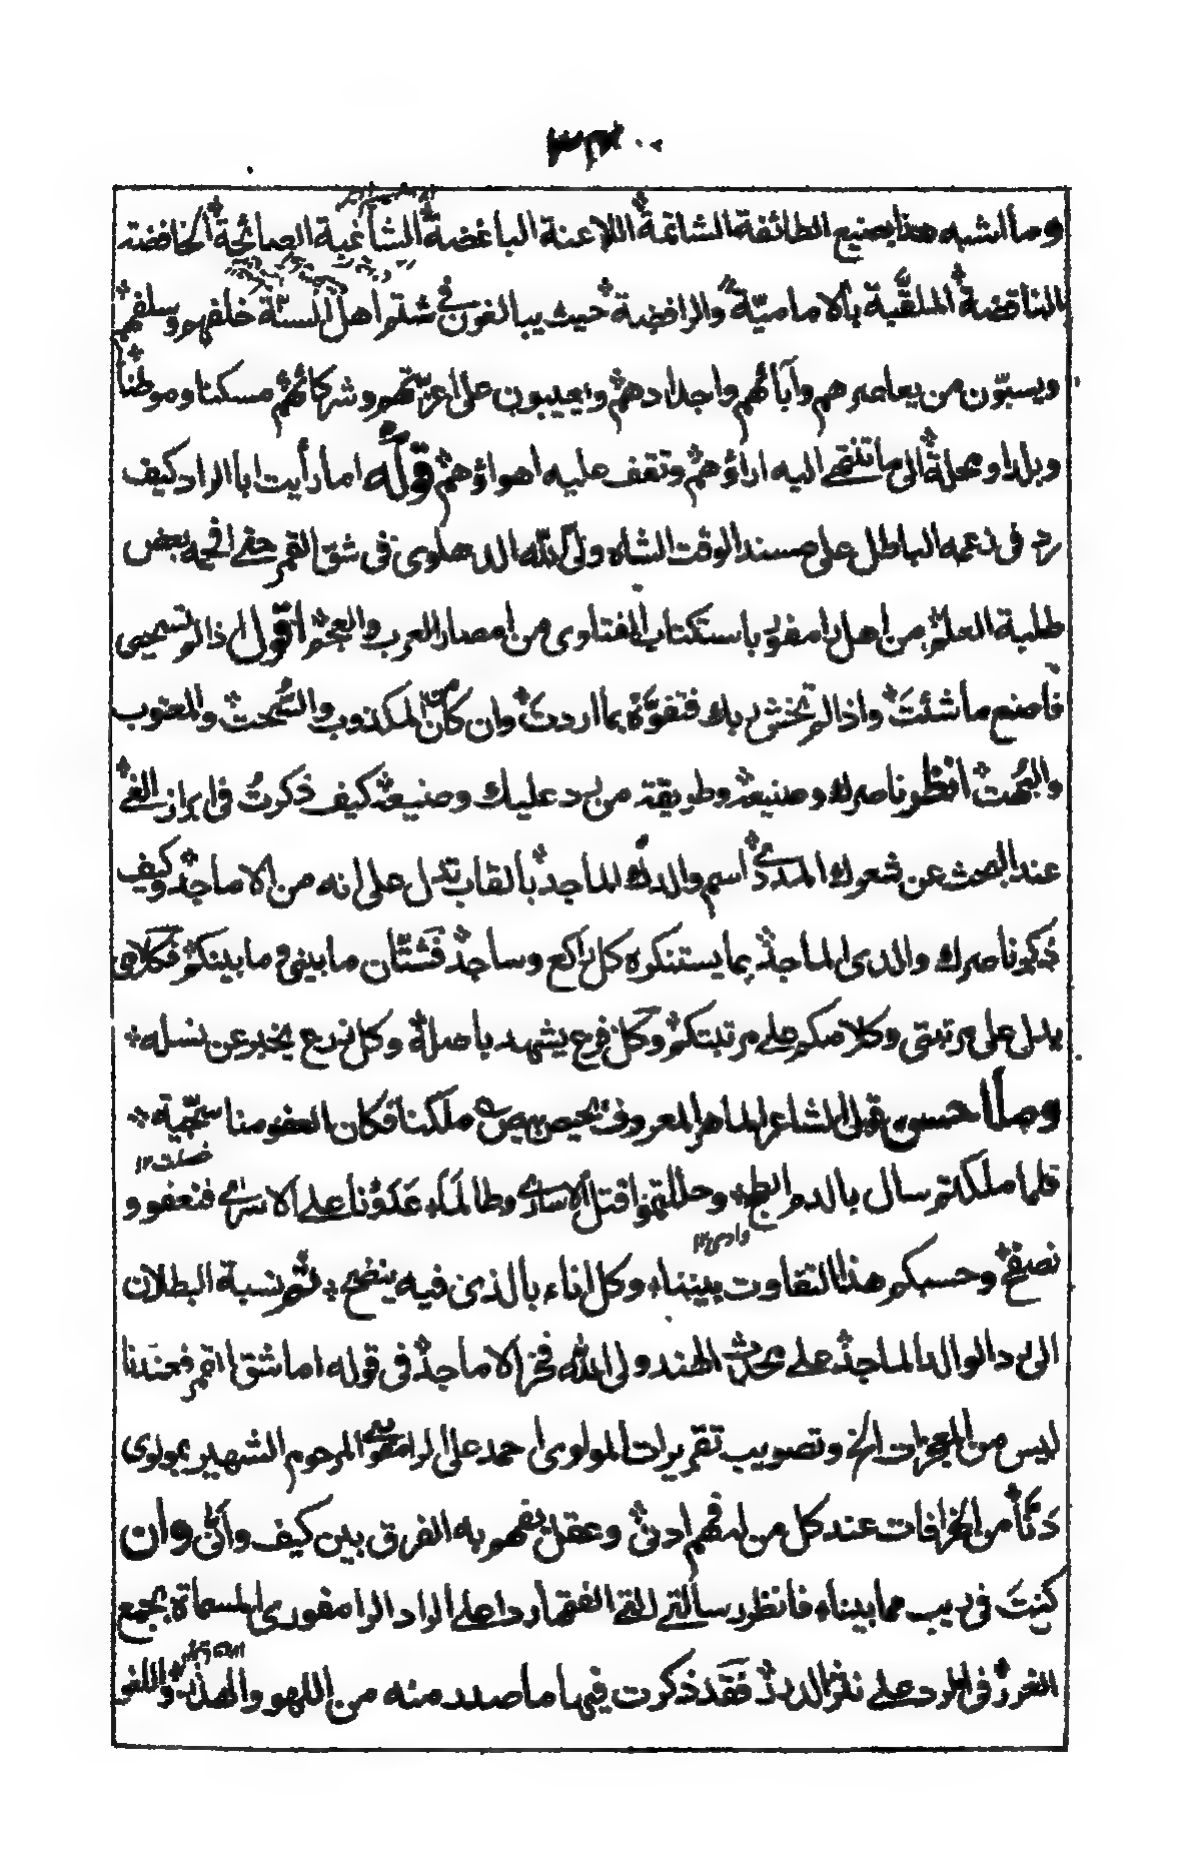 وما اشبه هذا بصنيع الطائفة الشاتمة اللاعنة الباغضة الشاغبة الصائحة الخافضة
الناقضة الملقبة بالامامية والرافضة حيث يبالغون في شتم اهل السنة خلفهم وسلفهم
ويسبّون من يعاصرهم وآبائهم واجدادهم ويعيبون على اعزّتهم وشركائهم مسكنا وموطنا
وبلدا ومحلة الى ما تنتهى اليه اراؤهم وتقف عليه اهواؤهم قوله اما رأيت ابا الراد كيف
رد في زعمه الباطل على مسند الوقت الشاه ولي الله الدهلوى فى شق القمر حتى افحمه بعض
طلبة العلم من اهل رامفور باستكتاب الفتاوى من امصار العرب والعجم اقول اذا لم تستحيى
فاصنع ما شئت واذا لم تخش ربك فتفوّه بما اردت وان كان من المكذوب والسُّحت والمعتوب
والبُهت انظر ناصرك وصنيعه وطريقته من يرد عليك وصنيعه كيف ذكرتُ في ابراز الغي
عند البحث عن شعرك المدد اسم والدك الماجد بألقاب تدل على انه من الاماجد وكيف
ذكر ناصرك والدى الماجد بما يستنكره كل راكع وساجد فشتّان ما بيني و ما بينكم فكلامى
يدل على مرتبتى وكلامكم على مرتبتكم وكل فرع يشهد باصله وكل زرع يخبر عن نسله
وما احسن قول الشاعر الماهر المعروف بحيص بيص ملكنا فكان العفو منا سجيّة
خصلت ١٢
فلما ملكتم سال بالدم ابطح وحللتمو قتل الاسارى وطالما عَدَوْنا على الاسرى فنعفو و
وادى ١٢
نصفح وحسبكم هذا التفاوت بيننا وكل اناء بالذى فيه ينضح ثم نسبة البطلان
الى رد الوالد الماجد على محدث الهند ولى الله فخر الاماجد في قوله اما شق القمر فعندنا
ليس من المعجزات الخ وتصويب تقريرات المولوى احمد على الرامفورى المرحوم الشهير بمولوى
من الخرافات عند كل من له فهم ادنى وعقل يفهم به الفرق بين كيف وانّى وان
كنتَ في ريب مما بيناه فانظر رسالتى التى الفتها ردا على الراد الرامفورى المسماة بجمع
الغرر في الرد على نثر الدرر فقد ذكرت فيها ما صدر منه من اللهو والهذر واللغو